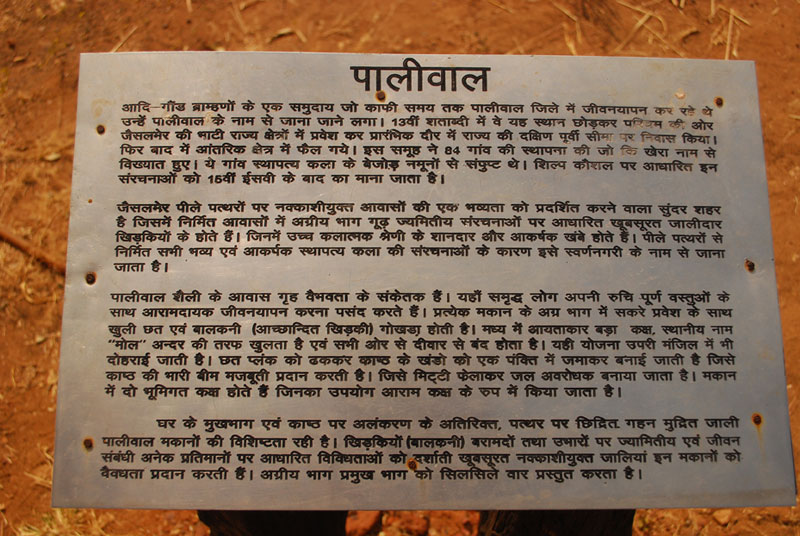 पालीवाल
आदि–गौंड ब्राम्हणों के एक समुदाय जो काफी समय तक पालीवाल जिले में जीवनयापन कर रहे थे
उन्हें पालीवाल के नाम से जाना जाने लगा। 13वीं शताब्दी में वे यह स्थान छोड़कर पश्चिम की ओर
जैसलमेर की भाटी राज्य क्षेत्रों में प्रवेश कर प्रारंभिक दौर में राज्य की दक्षिण पूर्वी सीमा पर निवास किया।
फिर बाद में आंतरिक क्षेत्र में फैल गये। इस समूह ने 84 गांव की स्थापना की जो कि खेरा नाम से
विख्यात हुए। ये गांव स्थापत्य कला के बेजोड़ नमूनों से संपुष्ट थे। शिल्प कौशल पर आधारित इन
संरचनाओं को 15वीं ईसवी के बाद का माना जाता है।
जैसलमेर पीले पत्थरों पर नक्काशीयुक्त आवासों की एक भव्यता को प्रदर्शित करने वाला सुंदर शहर
है जिसमें निर्मित आवासों में अग्रीय भाग गूढ़ ज्यमितीय संरचनाओं पर आधारित खूबसूरत जालीदार
खिड़कियों के होते हैं। जिनमें उच्च कलात्मक श्रेणी के शानदार और आकर्षक खंबे होते हैं। पीले पत्थरों से
निर्मित सभी भव्य एवं आकर्षक स्थापत्य कला की संरचनाओं के कारण इसे स्वर्णनगरी के नाम से जाना
जाता है।
पालीवाल शैली के आवास गृह वैभवता के संकेतक हैं। यहाँ समृद्ध लोग अपनी रुचि पूर्ण वस्तुओं के
साथ आरामदायक जीवनयापन करना पसंद करते हैं। प्रत्येक मकान के अग्र भाग में सकरे प्रवेश के साथ
खुली छत एवं बालकनी (आच्छान्दित खिड़की) गोखडा़ होती है। मध्य में आयताकार बड़ा कक्ष, स्थानीय नाम
"मोल" अन्दर की तरफ खुलता है एवं सभी ओर से दीवार से बंद होता है। यही योजना उपरी मंजिल में भी
दोहराई जाती है। छत प्लंक को ढककर काष्ठ के खंडो को एक पंक्ति में जमाकर बनाई जाती है जिसे
काष्ठ की भारी बीम मजबूती प्रदान करती है। जिसे मिट्टी फेलाकर जल अवरोधक बनाया जाता है। मकान
में दो भूमिगत कक्ष होते हैं जिनका उपयोग आराम कक्ष के रुप में किया जाता है।
घर के मुखभाग एवं काष्ठ पर अलंकरण के अतिरिक्त, पत्थर पर छिद्रित गहन मुद्रित जाली
पालीवाल मकानों की विशिष्टता रही है। खिड़कियों (बालकनी) बरामदों तथा उभारों पर ज्यामितीय एवं जीवन
संबंधी अनेक प्रतिमानों पर आधारित विविधताओं को दर्शाती खूबसूरत नक्काशीयुक्त जालियां इन मकानों को
वैवधता प्रदान करती हैं। अग्रीय भाग प्रमुख भाग को सिलसिले वार प्रस्तुत करता है।